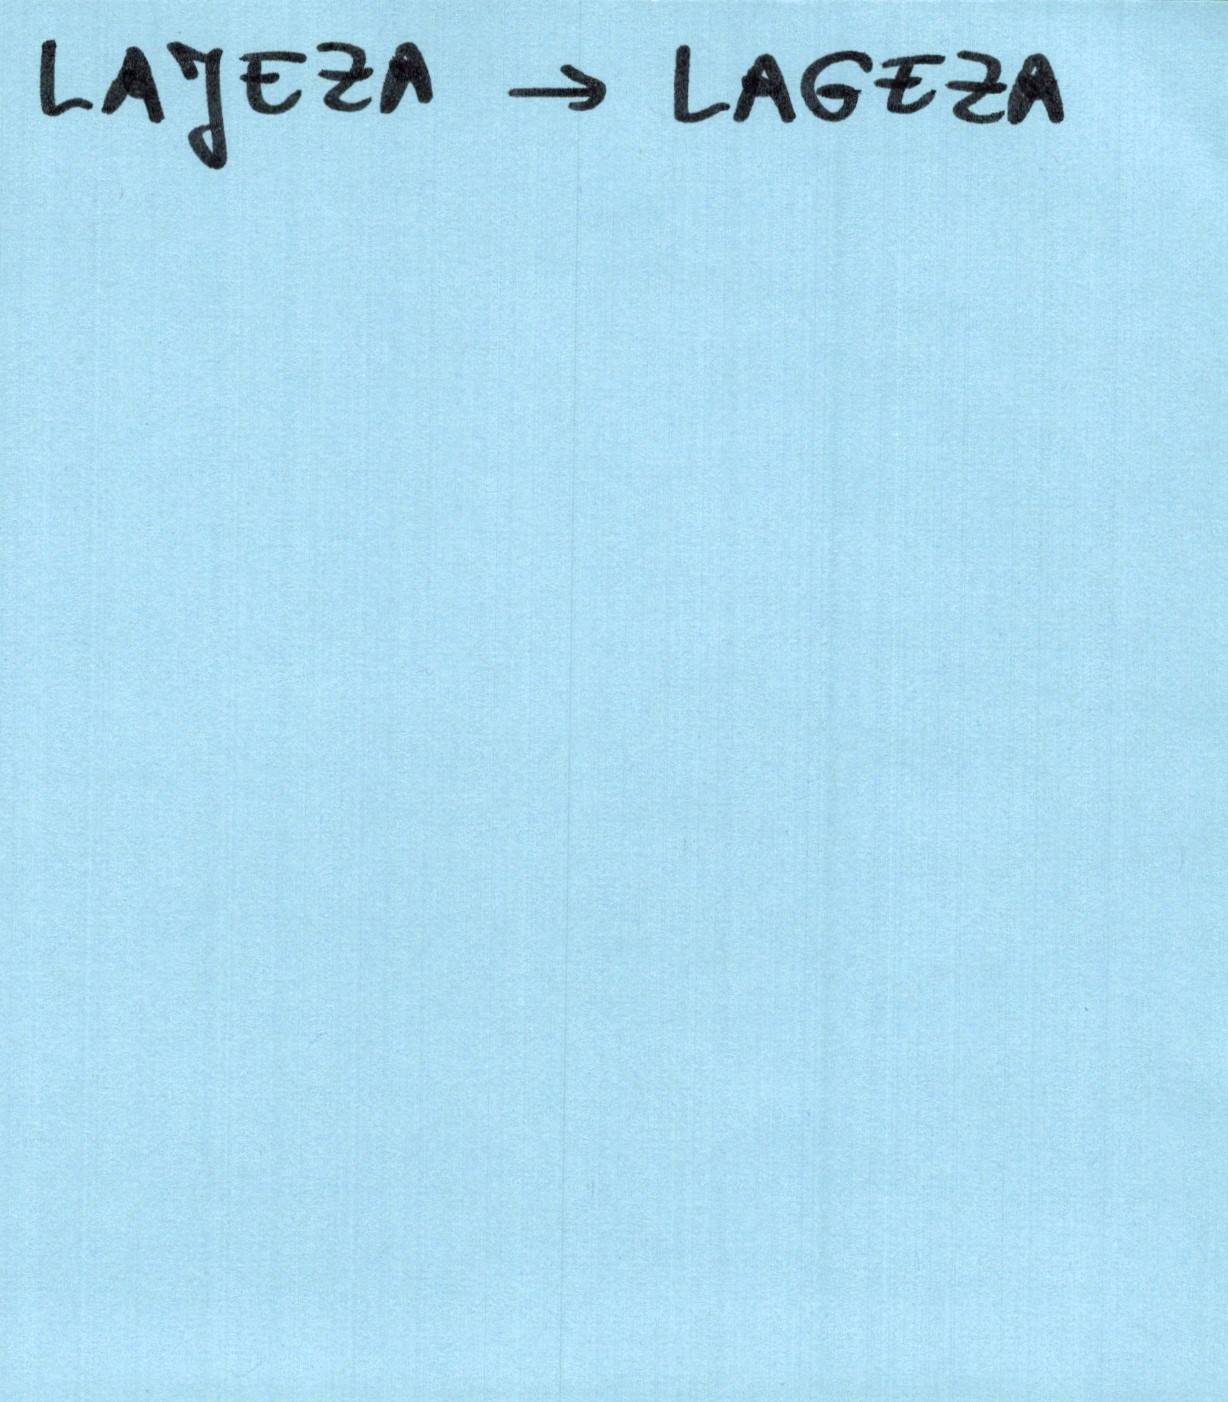 LAJEZA → LAGEZA